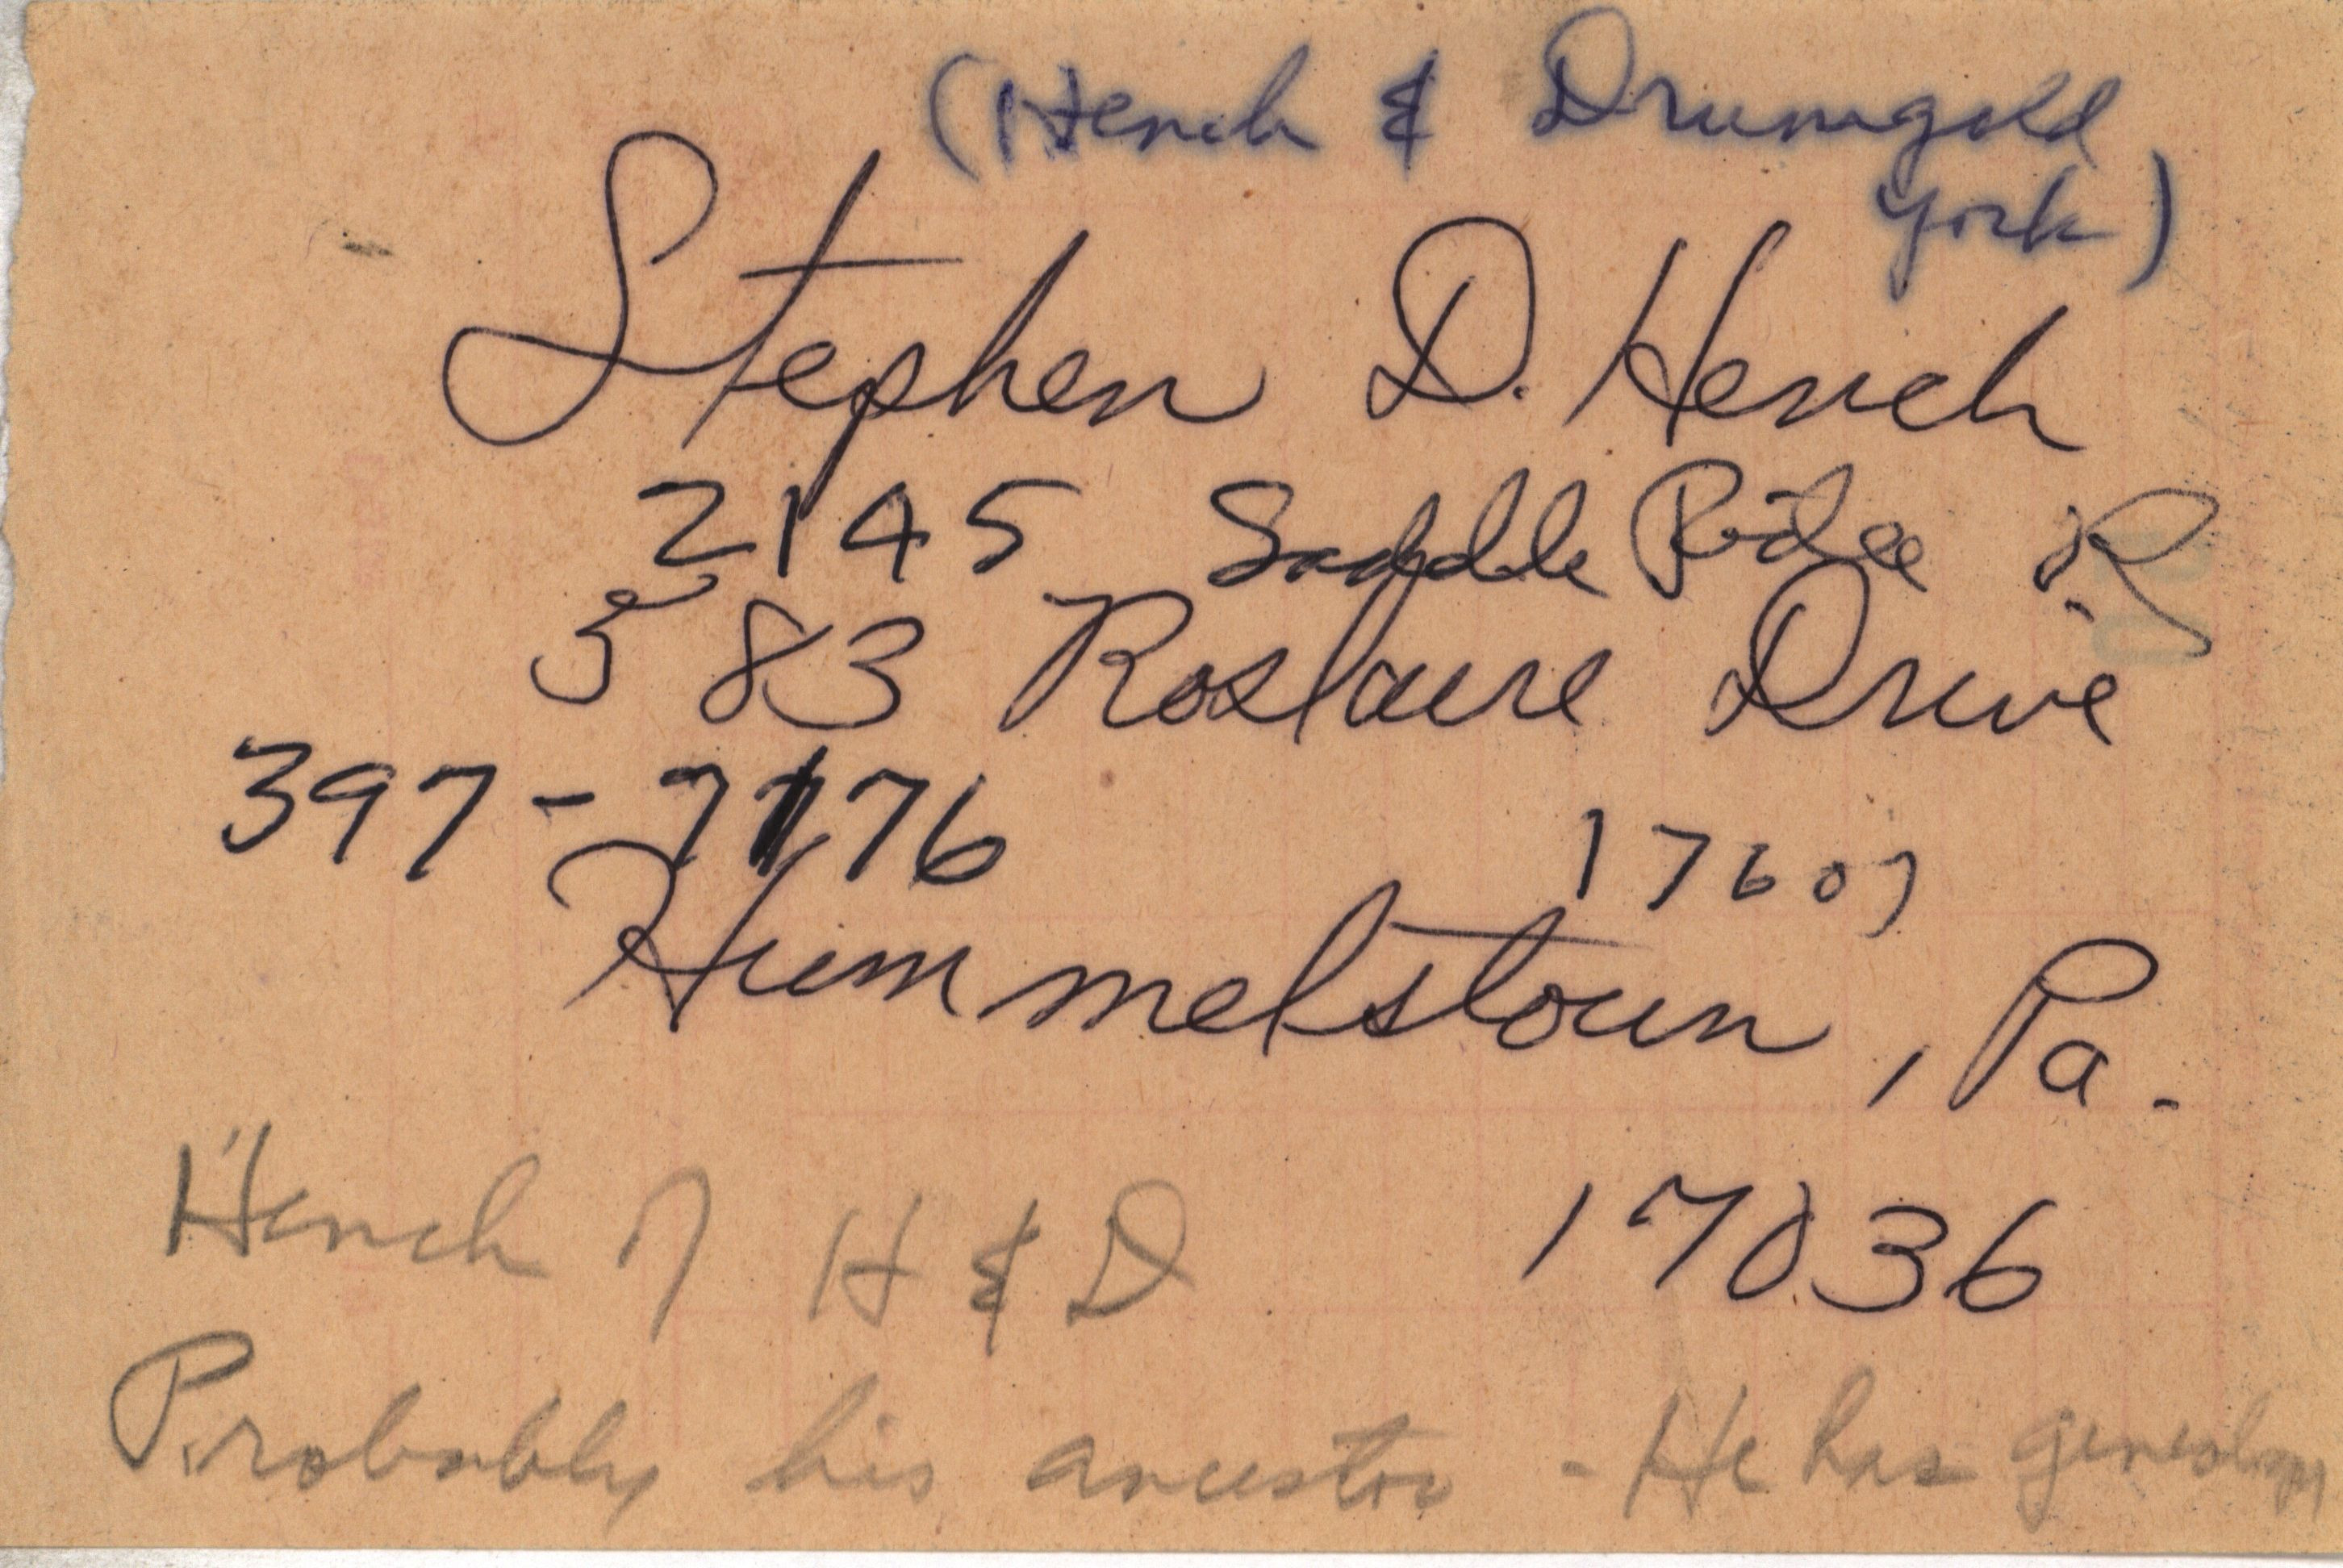 (Hench & Drumgold
York)
Stephen D. Hench
2145 Saddle Ridge R
583 Roslaire Drive
397-7176
17607
Hummelstown, Pa.
17036
Hench of H & D
Probably his ancestor - He has genealogy